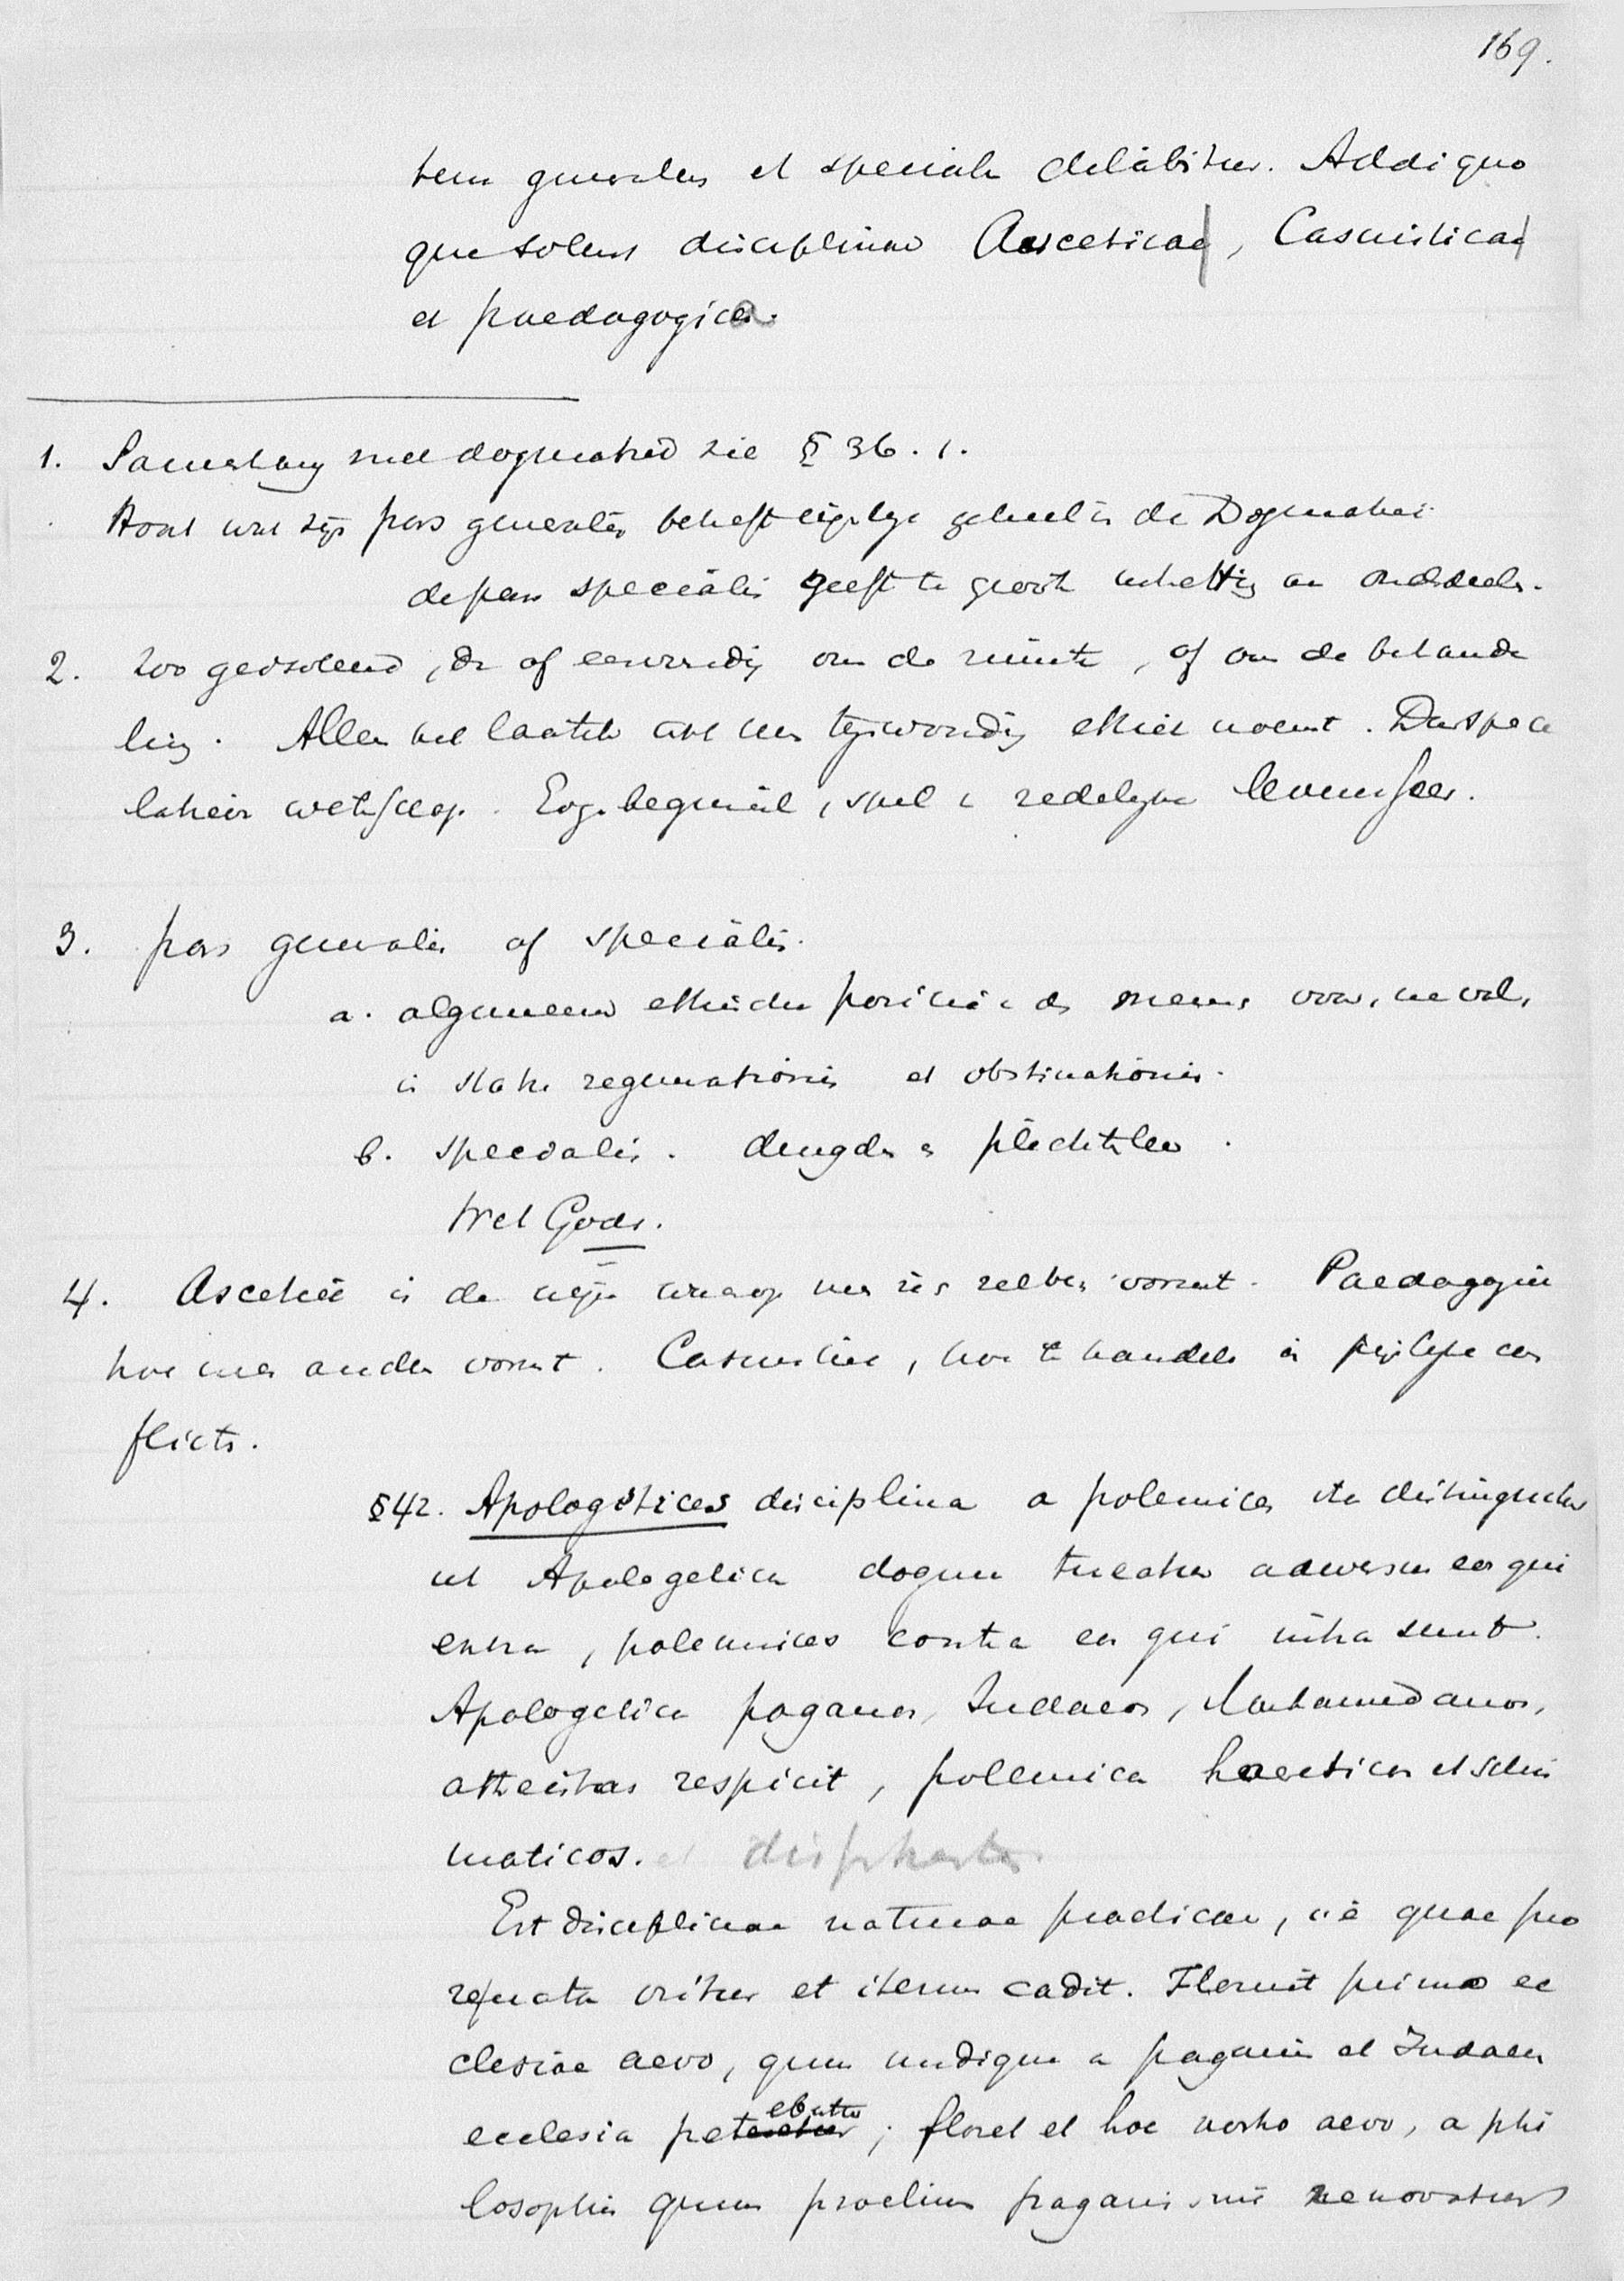 169.
tem generalem et specialem delabitur. Addi quo
que solent disciplinae Ascetica, Casuistica
et paedagogica.
1. Samenhang met dogmatiek zie § 36. 1.
Want wat zijn pars generalis betreft geheel in de Dogmatiek
de pars specialis geeft te groote uitbotting en onderdeel.
2. Zoo gedoceerd, of eenvoudig om de ruimte, of om de behande
ling. Alleen het laatste wat men tegenwoordig ethiek noemt. De specu
latieve wetenschap. beginsel, spel redelijke levenssfeer.
3. pars generalis of specialis.
a. algemeene ethische positie v. d. mens voor, na val,
in statu regenerationis et obstinationis.
b. specialis. deugden plichtsleer.
Wet Gods.
4. Ascetiek is de wijze waarop men zich zelven vormt. Paedagogiek
hoe men anderen vormt. Casuistiek, hoe te handelen in con
flicts.
§42. Apologetices disciplina a polemices ita distinguitur
ut Apologetica dogma tueatur adversus eos qui
extra, polemices contra eos qui intra sunt.
Apologetica paganos, Iudaeos, Mahamedanos,
atheistas respicit, polemica haereticos et schis
maticos. et
Est disciplinae naturae practicae, quae pro
re nata oritur et iterum cadit. Floruit primo ec
clesiae aevo, quum undique a paganis et Iudaeis
ecclesia petebatur; floret et hoc nostro aevo, a phi
losophis quum proelium paganismi renovatur